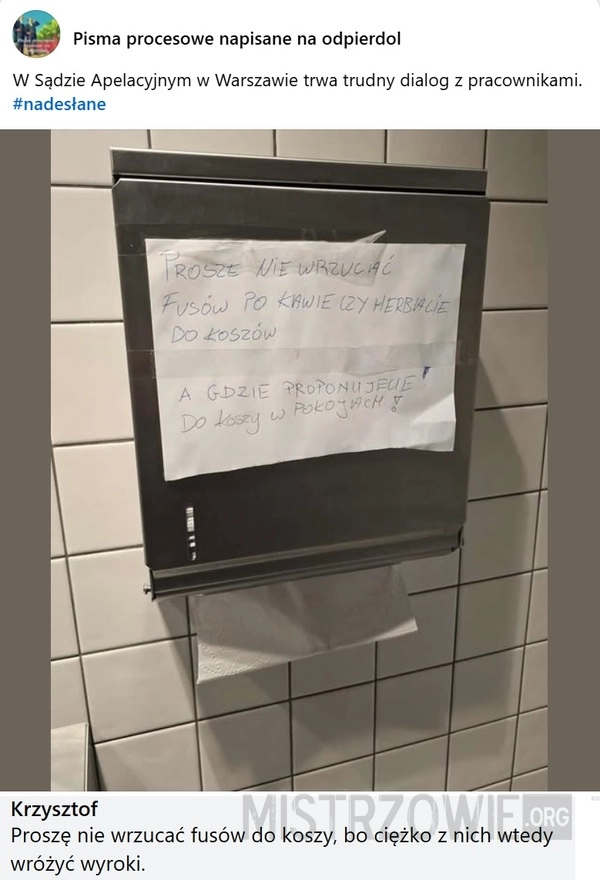 Pisma procesowe napisane na odpierdol
W Sądzie Apelacyjnym w Warszawie trwa trudny dialog z pracownikami.
#nadesłane
PROSZE NIE WRZUCAĆ
FUSÓW PO KAWIE CZY HERBACIE
DO KOSZÓW
A GDZIE PROPONUJECIE!
DO KOSZY W POKOJACH!
Krzysztof
MISTRZOWIE.ORG
Proszę nie wrzucać fusów do koszy, bo ciężko z nich wtedy
wróżyć wyroki.